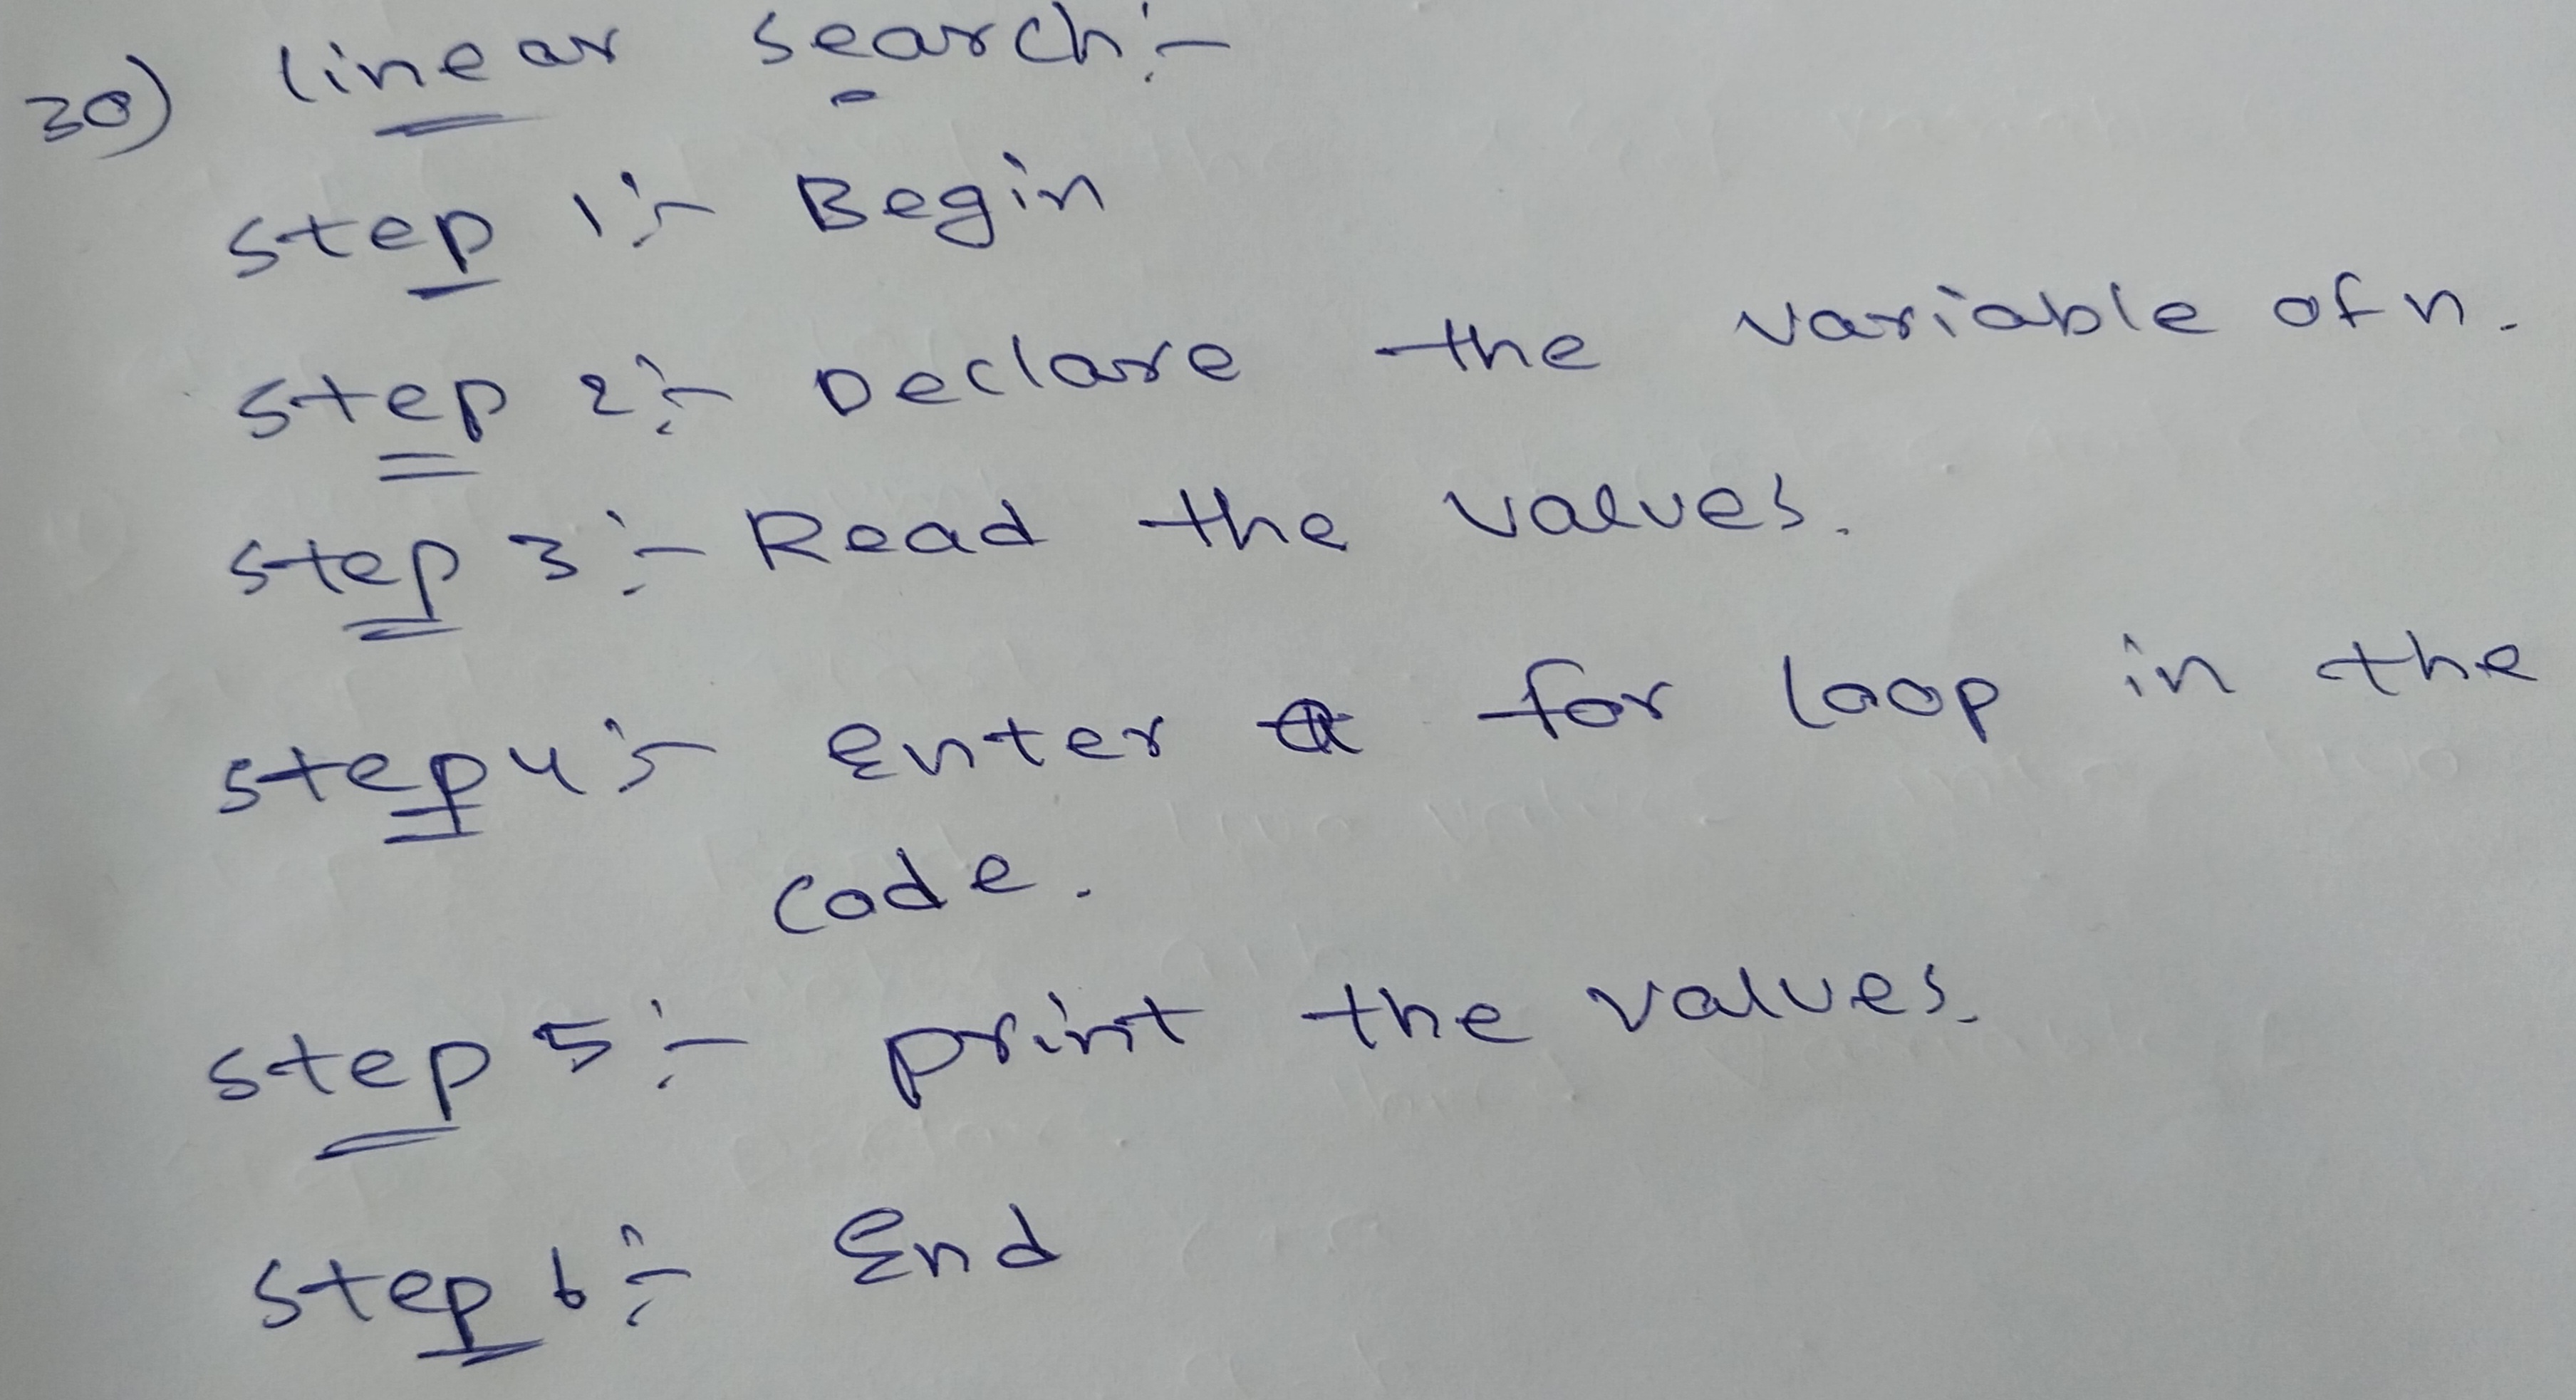 30) linear search:-
step 1:- Begin
step 2:- Declare the variable of n.
step 3:- Read the values.
step 4:- Enter a for loop in the
code.
step 5:- print the values.
step 6:- End